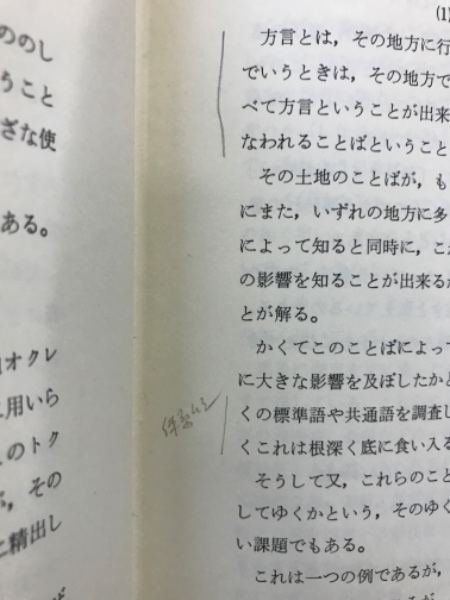 ののし
うこと
ざな使
ある。
オクレ
用いら
のトク
その
精出し
(1)
方言とは，その地方に行
でいうときは，その地方で
べて方言ということが出来
なわれることばということ
その土地のことばが，も
にまた，いずれの地方に多
によって知ると同時に，こ
の影響を知ることが出来る
とが解る。
かくてこのことばによっ
に大きな影響を及ぼしたか
くの標準語や共通語を調査し
くこれは根深く底に食い入る
そうして又，これらのこと
してゆくかという，そのゆく
い課題でもある。
これは一つの例であるが，